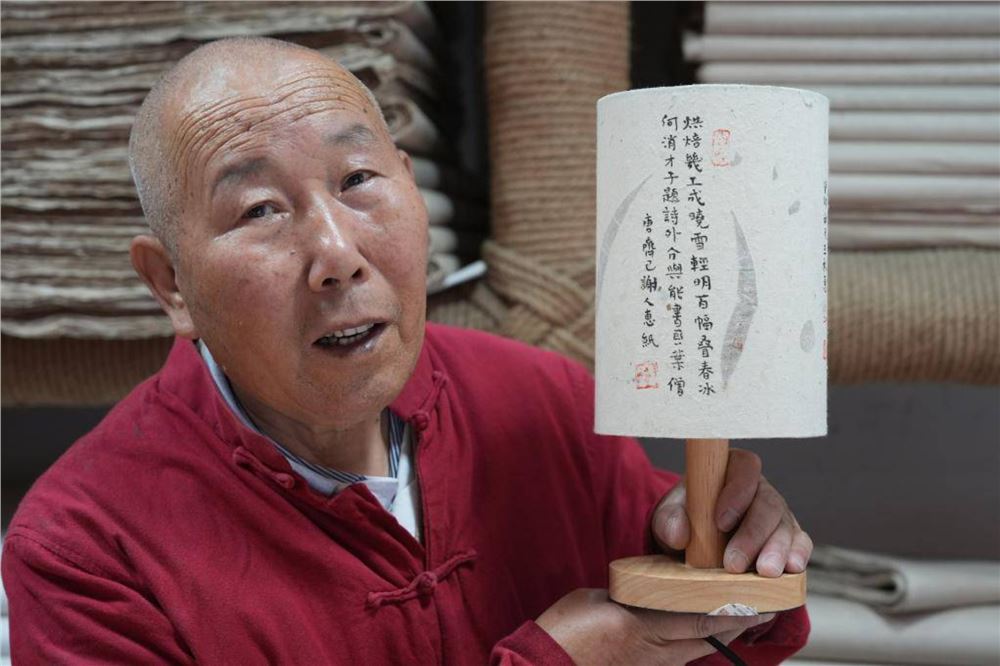 烘焙幾工成曉雪輕明百幅叠春冰
何消才子題詩外分與能書貝葉僧
唐齊己謝人惠紙